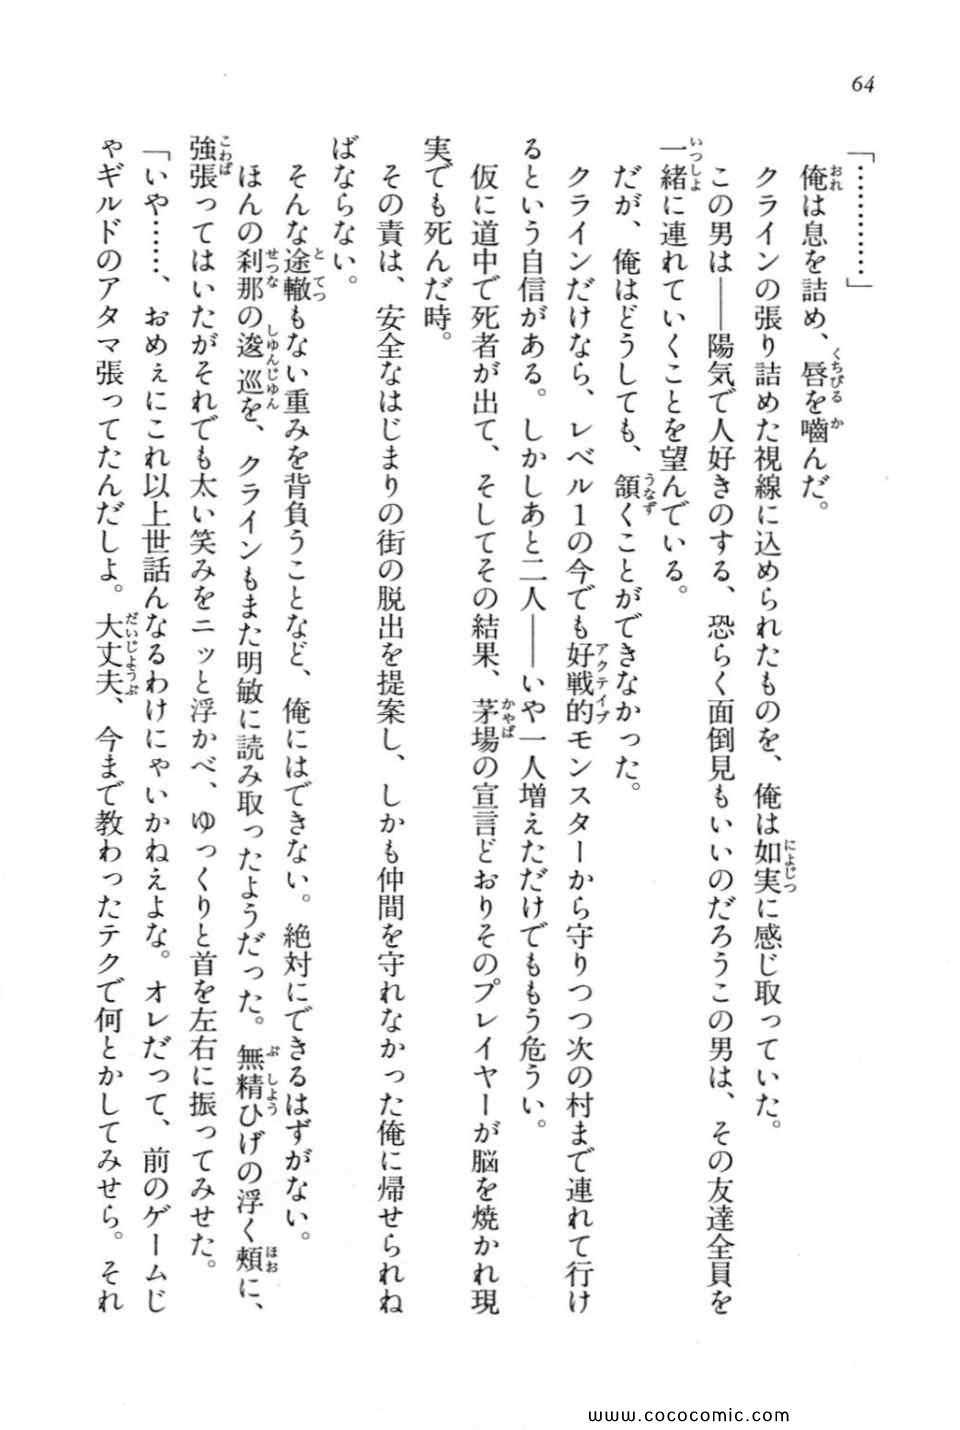 64
「…………」
俺は息を詰め、唇を嚙んだ。
クラインの張り詰めた視線に込められたものを、俺は如実に感じ取っていた。
この男は――陽気で人好きのする、恐らく面倒見もいいのだろうこの男は、その友達全員を
一緒に連れていくことを望んでいる。
だが、俺はどうしても、頷くことができなかった。
クラインだけなら、レベル1の今でも好戦的モンスターから守りつつ次の村まで連れて行け
るという自信がある。しかしあと二人――いや一人増えただけでももう危うい。
仮に道中で死者が出て、そしてその結果、茅場の宣言どおりそのプレイヤーが脳を焼かれ現
実でも死んだ時。
その責は、安全なはじまりの街の脱出を提案し、しかも仲間を守れなかった俺に帰せられね
ばならない。
そんな途轍もない重みを背負うことなど、俺にはできない。絶対にできるはずがない。
ほんの刹那の逡巡を、クラインもまた明敏に読み取ったようだった。無精ひげの浮く頰に、
強張ってはいたがそれでも太い笑みをニッと浮かべ、ゆっくりと首を左右に振ってみせた。
「いや……、おめぇにこれ以上世話んなるわけにゃいかねえよな。オレだって、前のゲームじ
ゃギルドのアタマ張ってたんだしよ。大丈夫、今まで教わったテクで何とかしてみせら。それ
www.cococomic.com